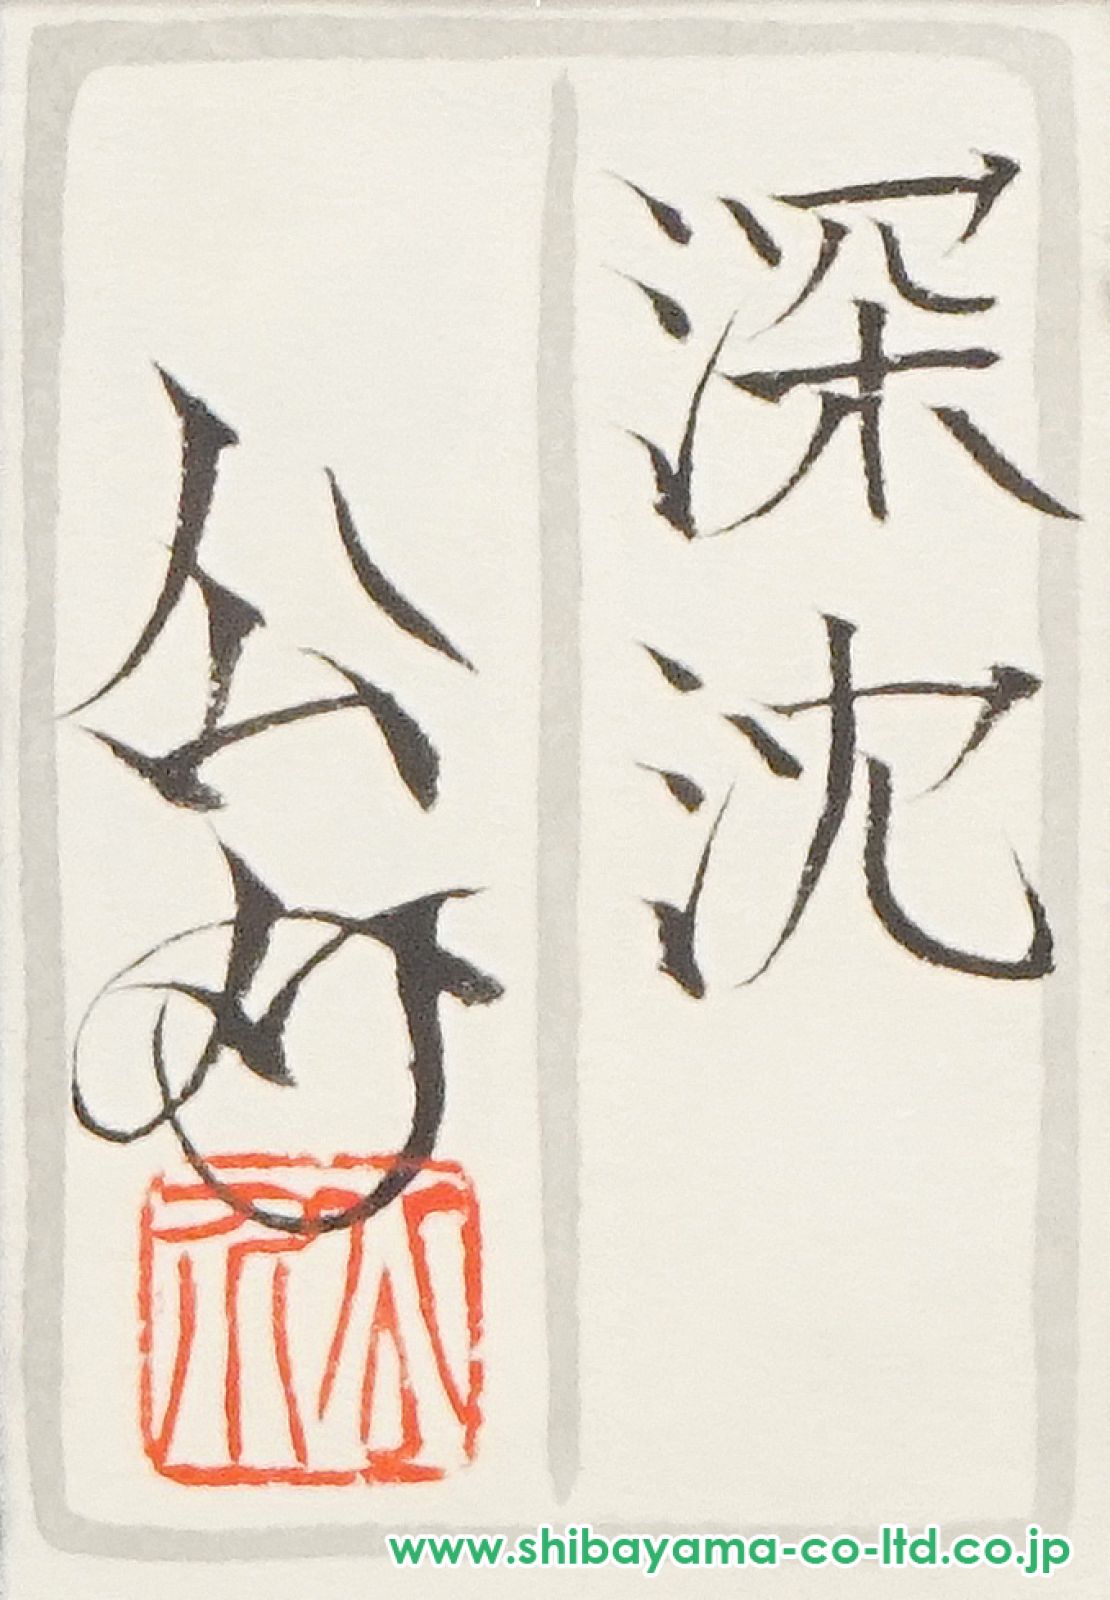 深沈
公
www.shibayama-co-ltd.co.jp